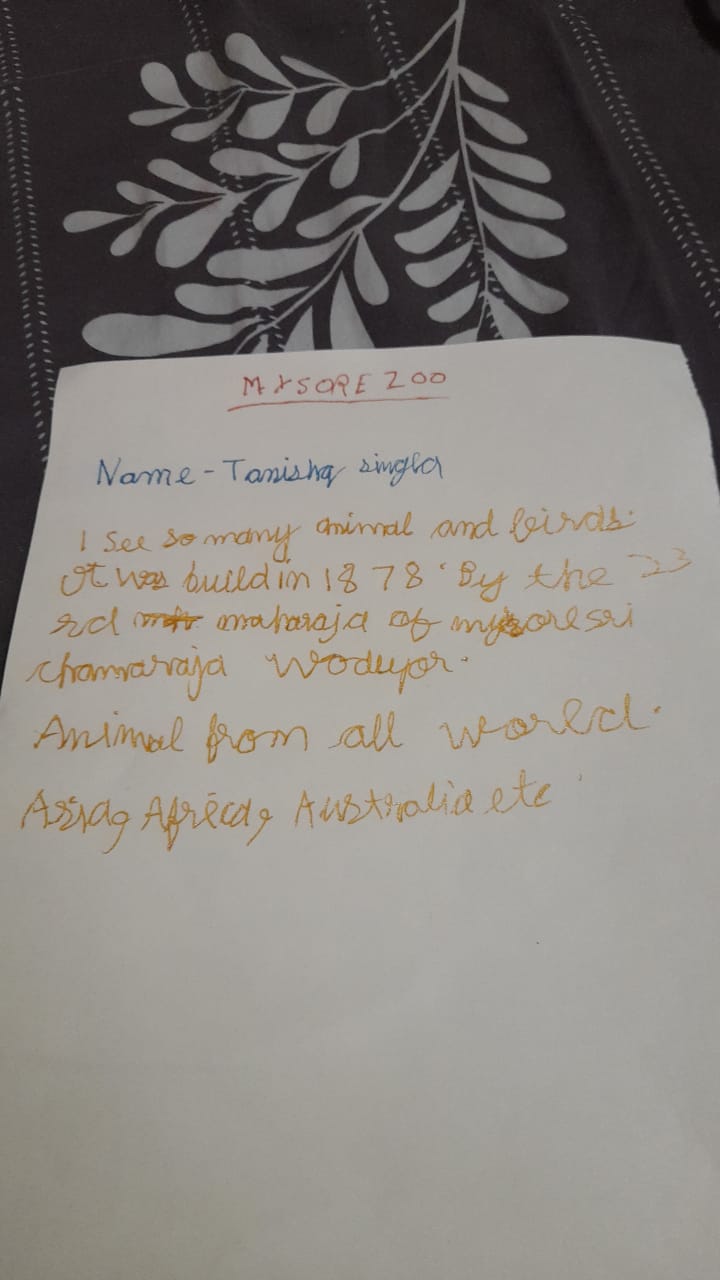 MYSORE ZOO
Name - Tanishq singla
I see so many animal and birds.
It was build in 1878. By the 23
rd maharaja of mysore sri
chamaraja Wodeyor.
Animal from all world.
Asia, Africa, Australia etc